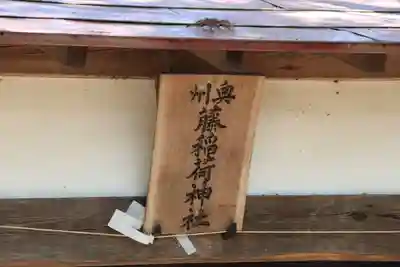 奥州
藤稲荷神社